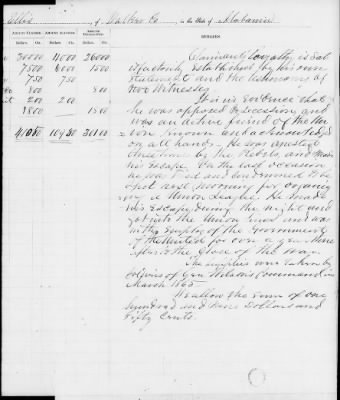 Ellis of Walker Co in the State of Alabama
Amount Claimed. Amount Allowed. Amount Disallowed. REMARKS.
Dolls. Cts. Dolls. Cts. Dolls. Cts.
300 00 40 00 260 00 Claimant's loyalty is sat
75 00 60 00 15 00 isfactorily established by his own
7 50 7 50 statement and the testimony of
8 00 8 00 two witnesses
2 00 2 00 It is in evidence that
18 00 18 00 he was opposed to secession and
was an active friend of the Un
ion known and acknowledged
on all hands. He was arrested
three times by the Rebels and made
his escape. On the last occasion
he was tried and condemned to be
shot next morning for organiz
ing a Union League. He made
his escape during the night and
got into the Union lines and was
in the employ of the Government
of the United for over a year
after the close of the war.
The supplies were taken by
of Gen Wilson's Command in
March 1865
We allow the sum of one
hundred and nine Dollars and
Fifty Cents.